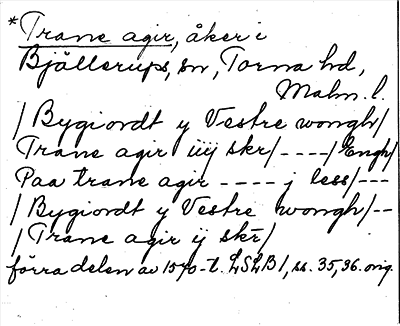 *Trane agir, åker i
Bjällerups, sn, Torna hd,
Malm. l.
/ Bygiordt y Vestre wongh/
Trane agir iiij skr/ ----/ Engh/
Paa trane agir ---- j less/ ---
/ Bygiordt y Vestre wongh/ --
/ Trane agir ij skr/
förra delen av 1570-t. LSLB 1, ss. 35, 36. orig.